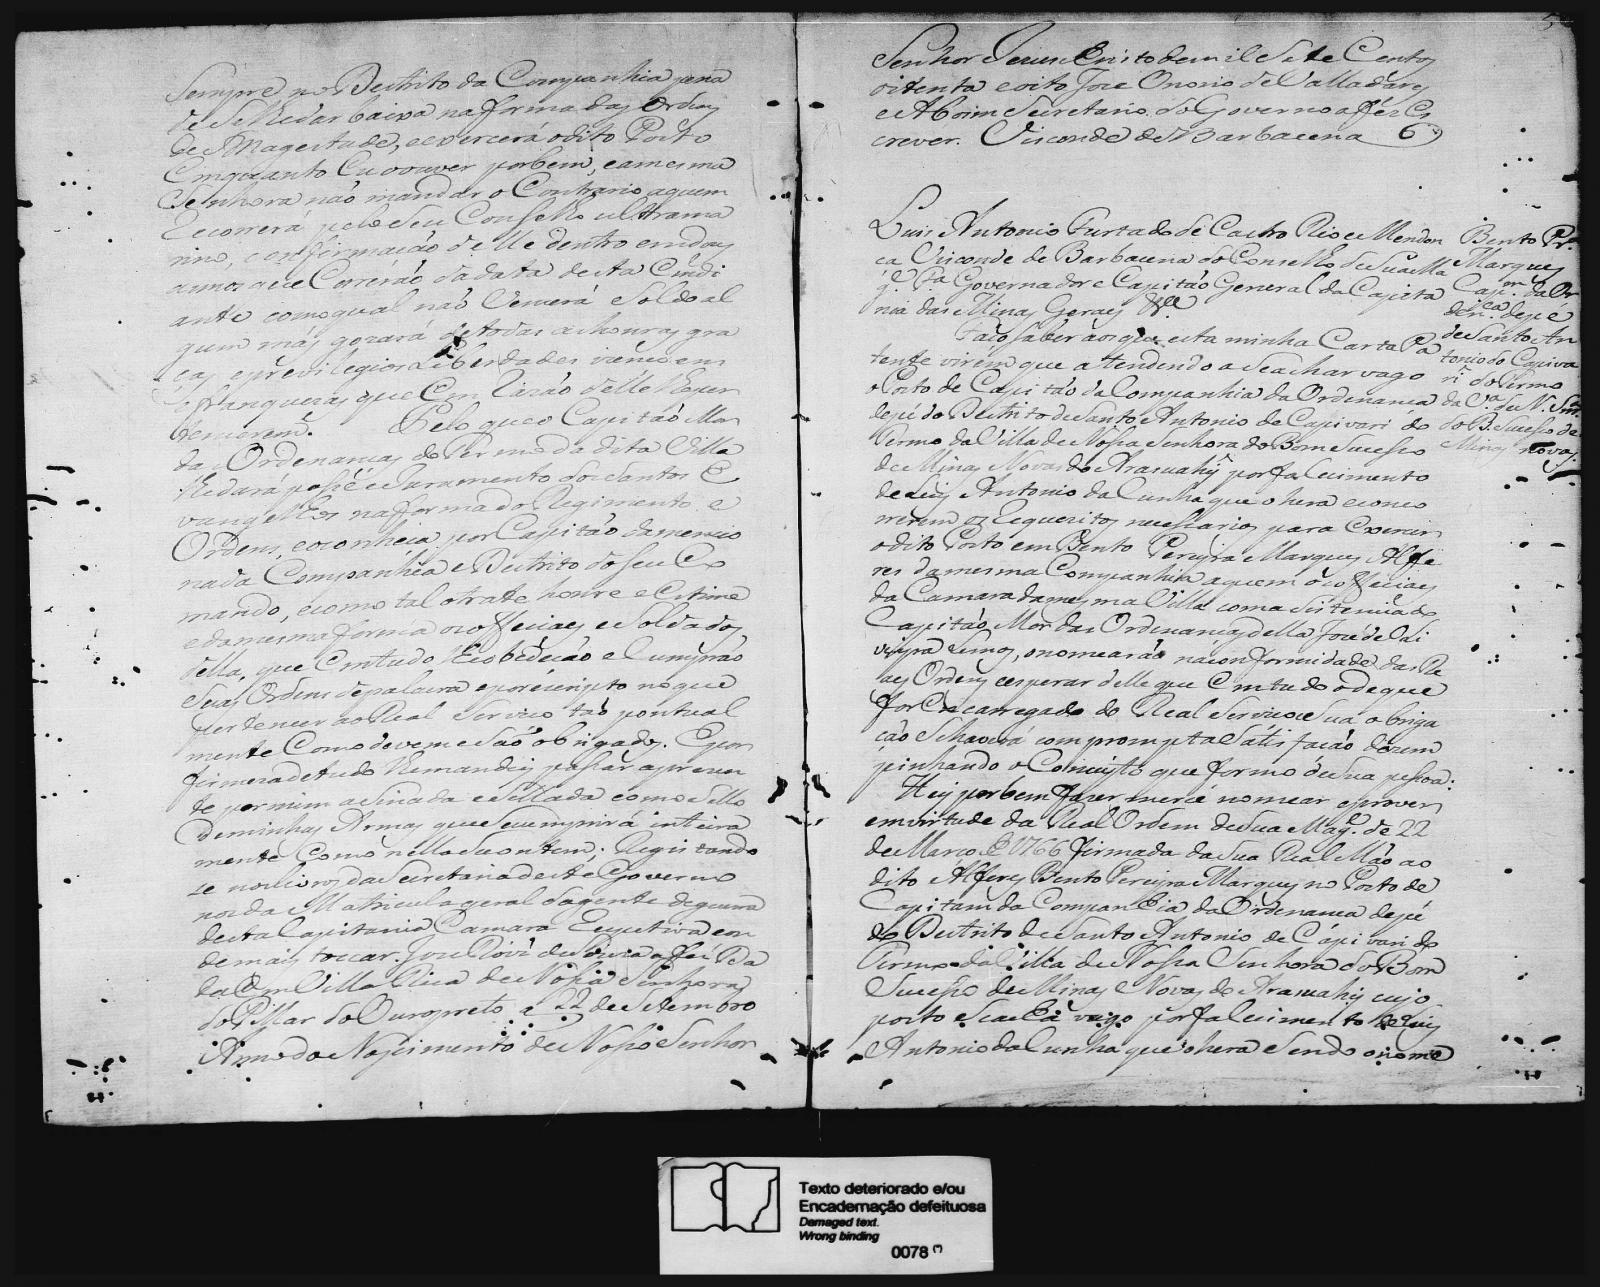 Sempre no Destrito da Companhia pena
de Se lhe dar baixa na forma das Ordens
de Magestade, e exercerá o dito Posto
Emquanto Eu o ouver por bem, e a mesma
Senhora não mandar o Contrario a quem
Recorrerá pelo Seu Conselho ultrama
rino, confirmação delle dentro em dous
annos que Correrão da data desta Ciudi
ante com o qual não Vencerá Soldo al
gum mas gozará de todas as honras gra
ças e previlegios Liberdades izençoens
e franquezas que Em Razão delle lhe per
tencerem. Pelo que o Capitão Mor
das Ordenanças do Termo da dita Villa
lhe dará posse e Juramento dos Santos E
vangelhos na forma do Regimento e
Ordens, e o conheça por Capitão da mencio
nada Companhia e Destrito do Seu Co
mando, e como tal o trate honre e Estime
e da mesma forma os officiaes e Soldados
della, que Em tudo lhe obedeção e Cumprão
Suas Ordens de palavra e por escripto no que
pertencer ao Real Serviço tão pontual
mente Como devem e São obrigados. E por
firmeza de tudo lhe mandei passar a prezen
te por mim asinada e Sellada com o Sello
de minhas Armas que Se cumprirá inteira
mente Como nella Se contem; Registando
se nos livros da Secretaria deste Governo
nos da Matricula geral da gente de guerra
desta Capitania Camara Respetiva e on
de mais tocar. Joze Roiz de Souza a fez Da
da Em Villa Rica de Nossa Senhora
do Pillar do Ouropreto a 22 de Setembro
Anno do Nascimento de Nosso Senhor
Senhor Jezus Cristo de mil Sete Centos
oitenta e oito Joze Onorio de Valladares
e Aboim Secretario do Governo a fes Es
crever. Visconde de Barbacena
Luis Antonio Furtado de Castro Rio e Mendon
ça Visconde de Barbacena do Conselho de Sua Ma
g.e F.a Governador e Capitão General da Capita
nia das Minas Geraes &.a
Faço Saber aos que esta minha Carta Pa
tente virem que atendendo a Se achar vago
o Posto de Capitão da Companhia da Ordenança
de pé do Destrito de Santo Antonio de Capivari do
Termo da Villa de Nossa Senhora do Bom Sucesso
de Minas Novas do Arasuahy por falecimento
de Luis Antonio da Cunha que o hera e conco
rrerem os Requezitos necessarios para Exercer
o dito Posto em Bento Pereyra Marques Alffe
res da mesma Companhia a quem os officiaes
da Camara da mesma Villa com a Sistencia do
Capitão Mor das Ordenanças della Joze de
Lemos, o nomearão na conformidade das Re
aes Ordens e esperar delle que Em tudo o de que
for Encarregado do Real Serviço e Sua obriga
ção Se haverá com prompta Satisfação dezem
pinhando o Conceyto que formo de Sua pessoa:
Hey por bem fazer mercê nomear e prover
em virtude da Real Ordem de Sua Mag.e de 22
de Março de 1766 firmada da Sua Real Mão ao
dito Alferes Bento Pereyra Marques no Posto de
Capitam da Companhia da Ordenança de pé
do Destrito de Santo Antonio de Capivari do
Termo da Villa de Nossa Senhora do Bom
Sucesso de Minas Novas do Arasuahy cujo
posto Se acha vago por falecimento de Luis
Antonio da Cunha que o hera Sendo o nome
Bento Pr.a
Marques
Cap.m da Or
den.ca de pé
de Santo An
tonio do Capiva
ri do Termo
da V.a de N. Snr.a
do B. Sucesso de
Minas novas.
Texto deteriorado e/ou
Encadernação defeituosa
Damaged text.
Wrong binding
0078 (*)